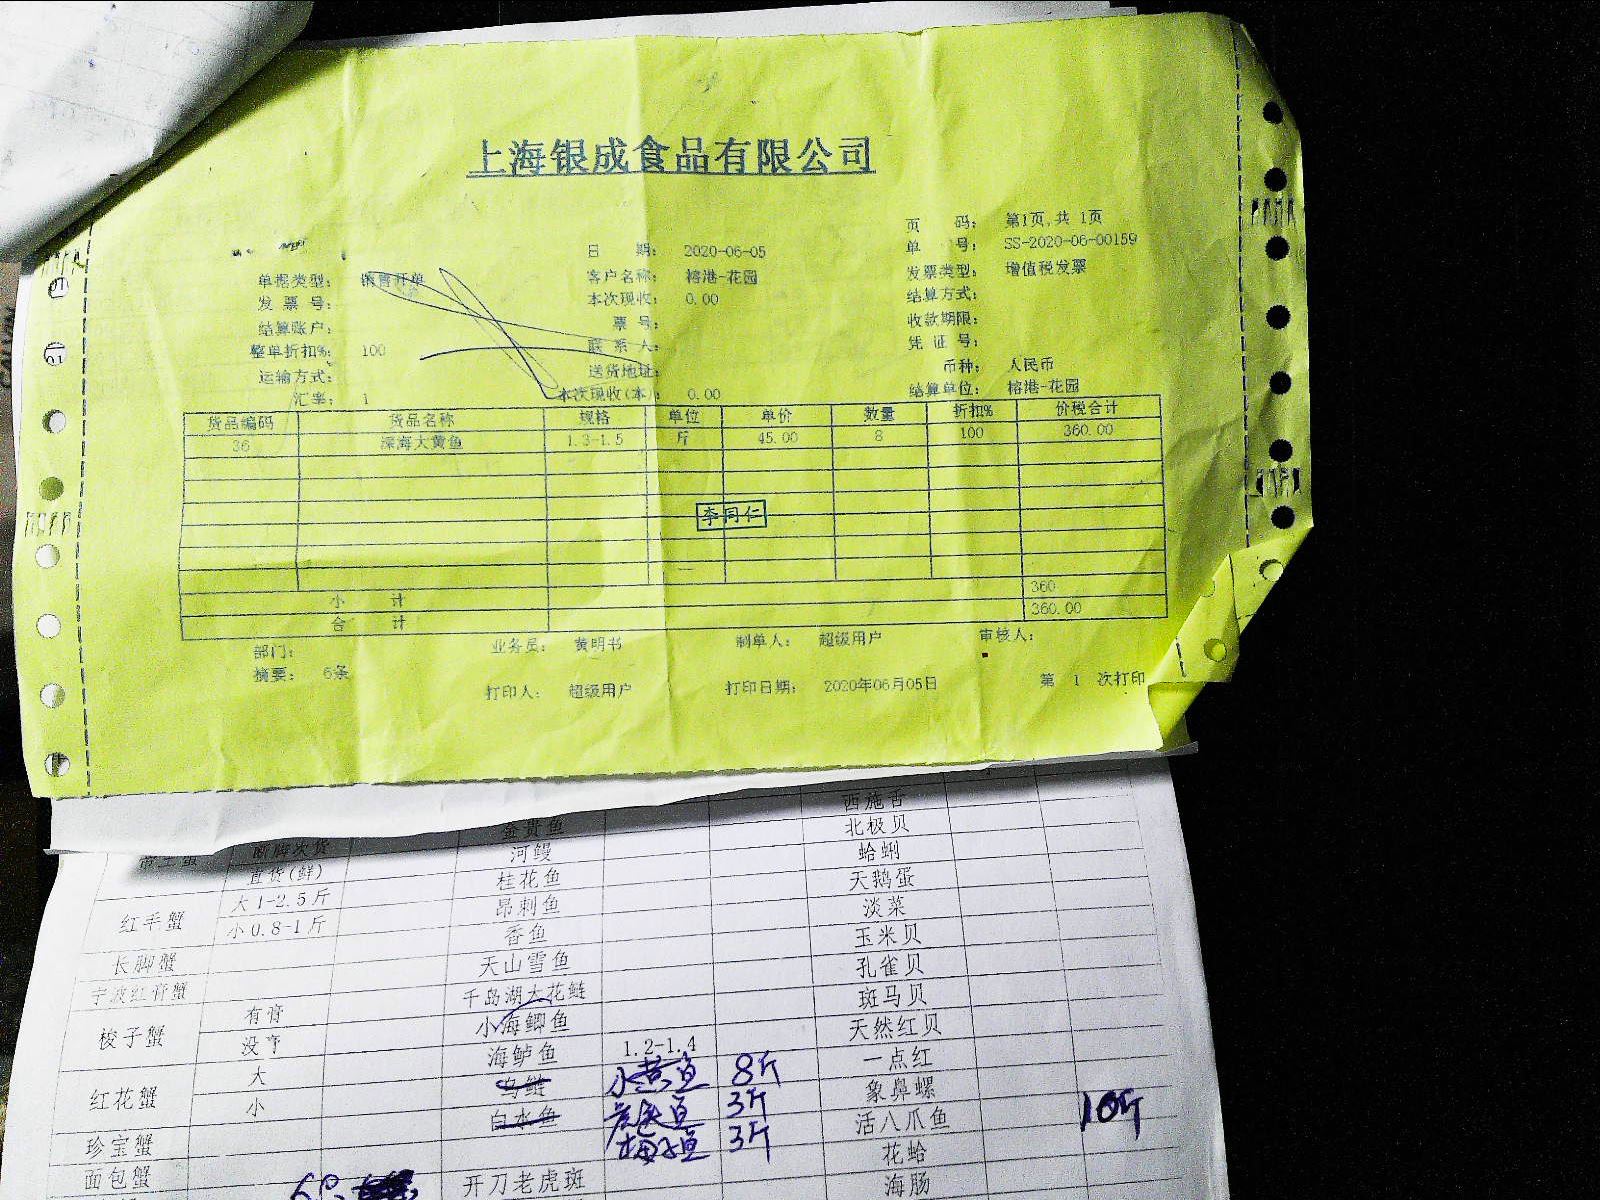 上海银成食品有限公司
页 码： 第1页,共 1页
日 期： 2020-06-05 单 号： SS-2020-06-00159
单据类型： 销售开单 客户名称： 榕港-花园 发票类型： 增值税发票
发 票 号： 本次现收： 0.00 结算方式：
结算账户： 票 号： 收款期限：
整单折扣%： 100 联 系 人： 凭 证 号：
运输方式： 送货地址： 币种： 人民币
汇率： 1 本次现收(本)： 0.00 结算单位： 榕港-花园
货品编码 货品名称 规格 单位 单价 数量 折扣% 价税合计
36 深海大黄鱼 1.3-1.5 斤 45.00 8 100 360.00
李同仁
小 计 360
合 计 360.00
部门： 业务员： 黄明书 制单人： 超级用户 审核人：
摘要： 6条 打印人： 超级用户 打印日期： 2020年06月05日 第 1 次打印
西施舌
北极贝
断脚次货 河鳗 蛤蜊
直货(鲜) 桂花鱼 天鹅蛋
红毛蟹 大1-2.5斤 昂刺鱼 淡菜
小0.8-1斤 香鱼 玉米贝
长脚蟹 天山雪鱼 孔雀贝
宁波红膏蟹 千岛湖大花鲢 斑马贝
梭子蟹 有膏 小海鲫鱼 天然红贝
没亨 海鲈鱼 1.2-1.4 一点红
红花蟹 大 乌鲢 小黄鱼 8斤 象鼻螺
小 白水鱼 3斤 活八爪鱼 10斤
珍宝蟹 3斤 花蛤
面包蟹 开刀老虎斑 海肠